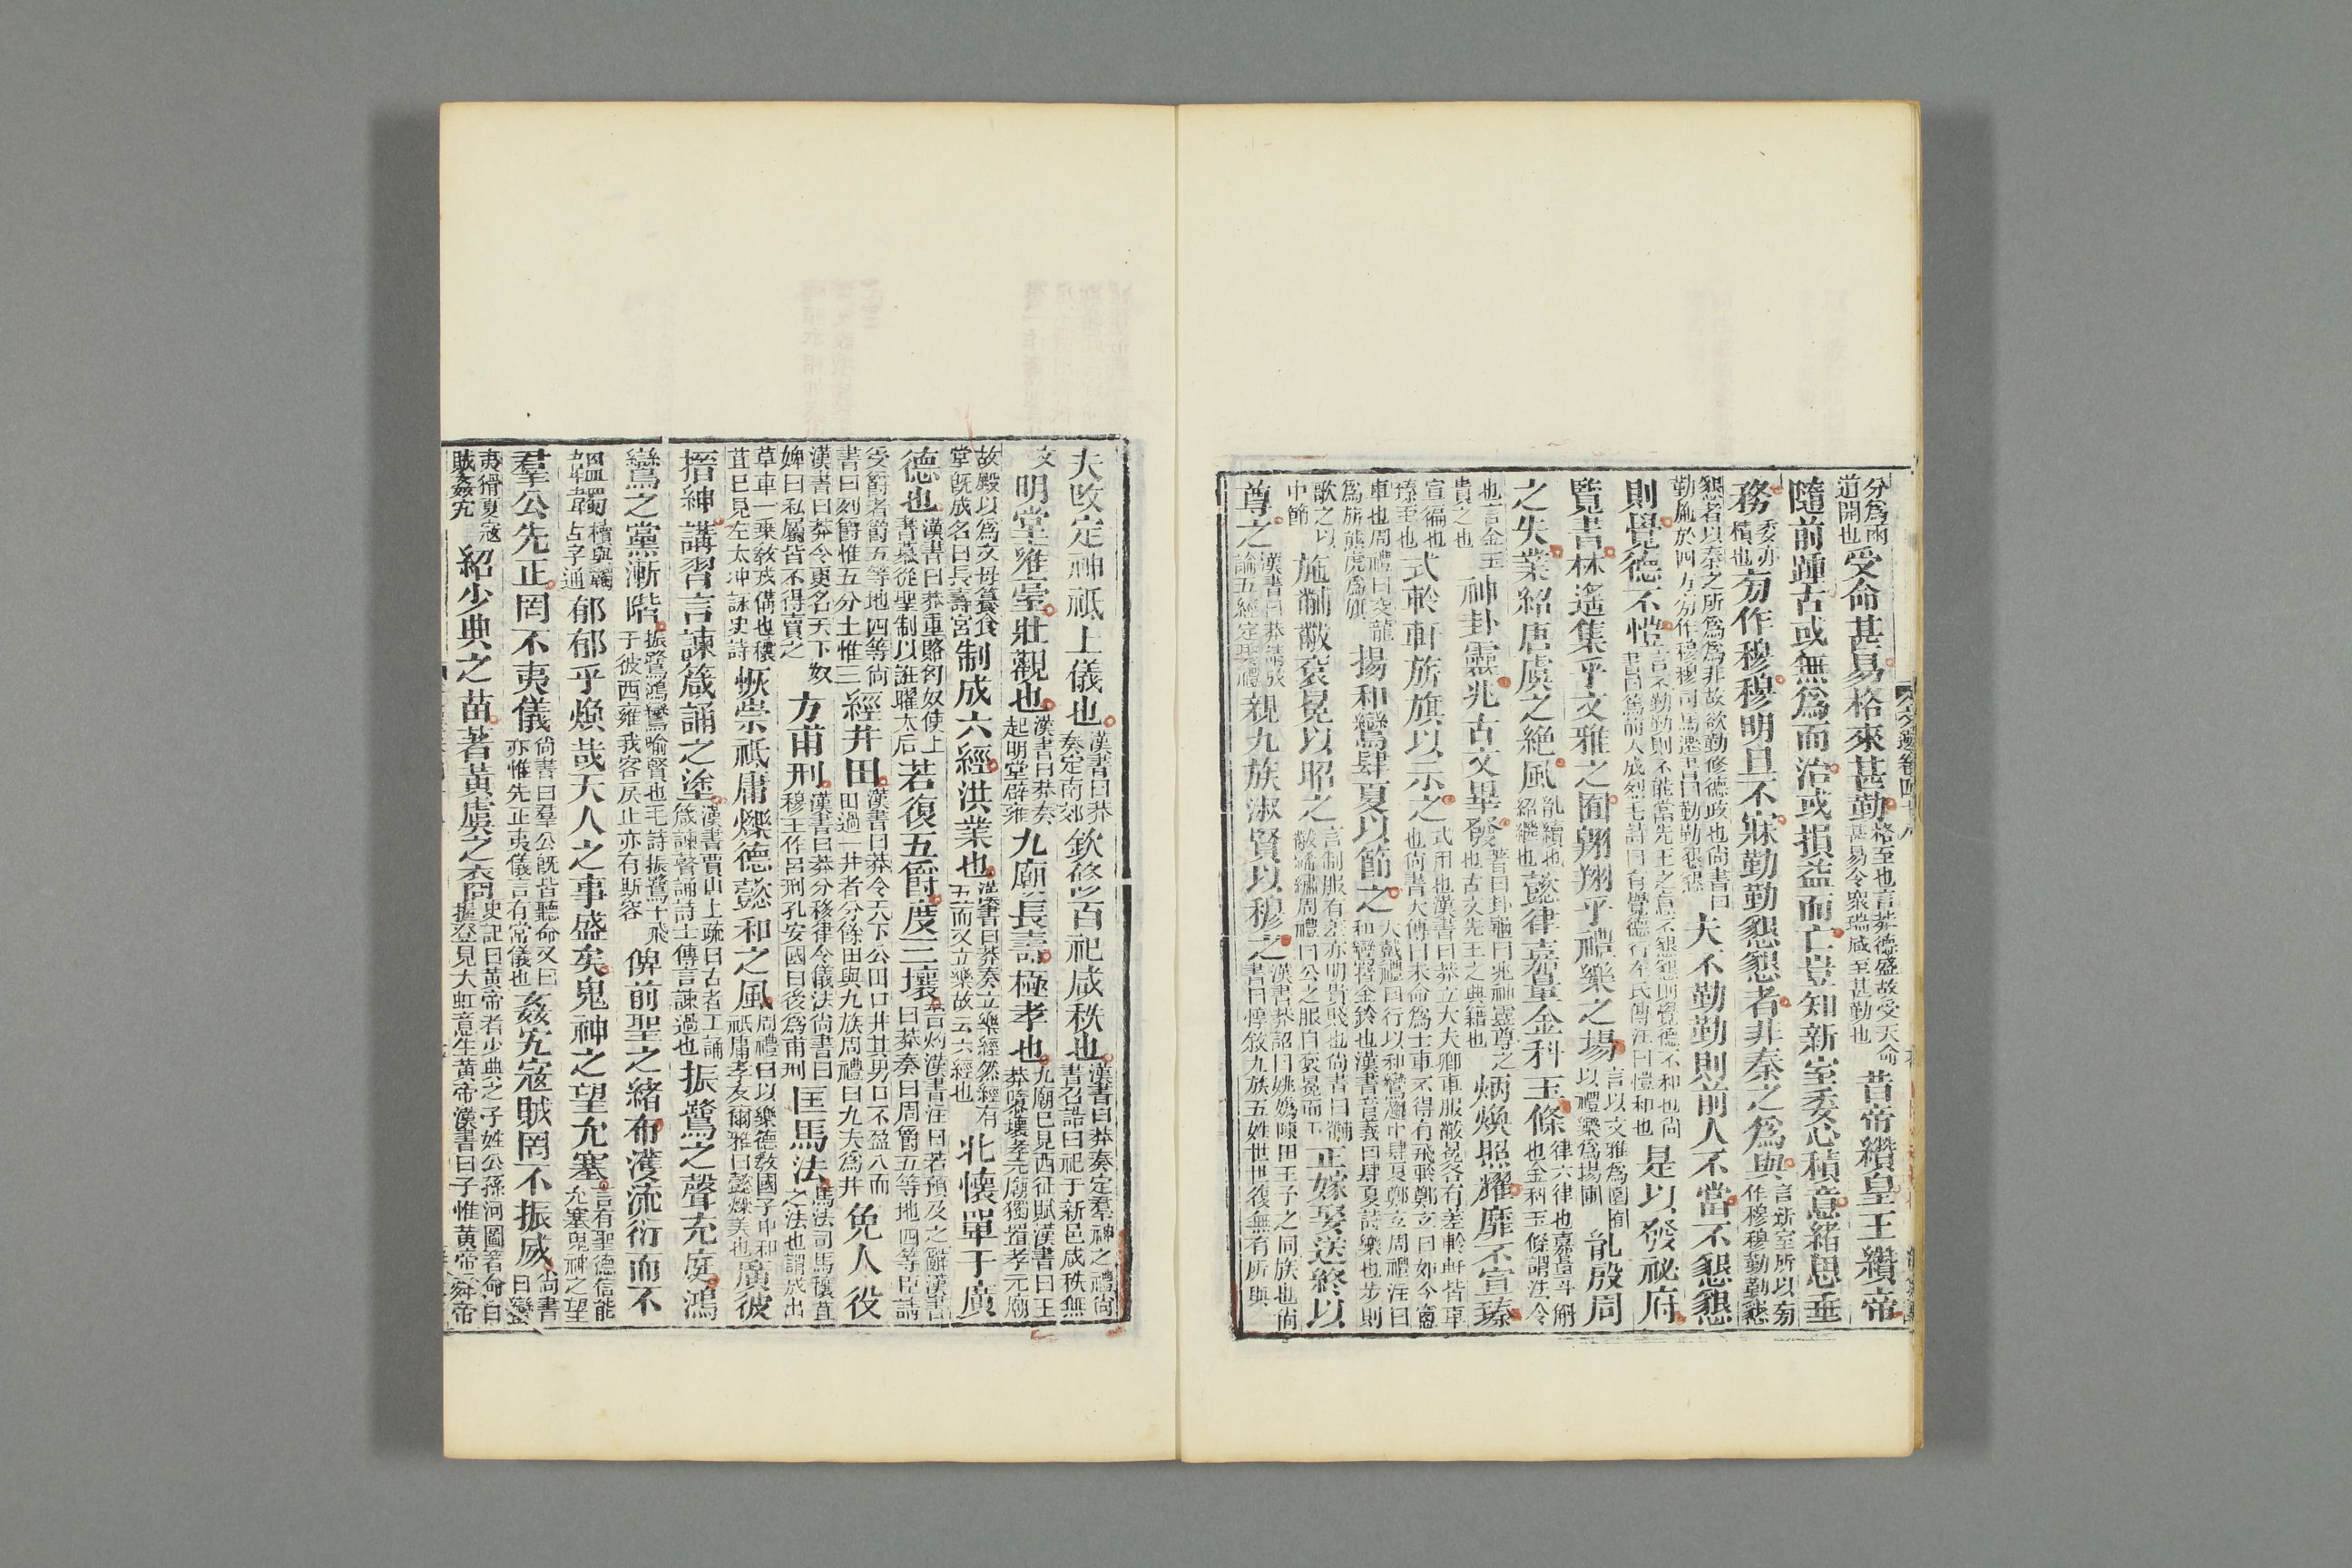 分爲兩道開也受命甚易格來甚勤格至也言莽德盛故受天命甚易令衆瑞咸至甚勤也昔帝纘皇王纘帝
隨前踵古或無爲而治或損益而亡豈知新室委心積意緒思垂
務委亦積也旁作穆穆明旦不寐勤勤懇懇者非秦之爲與言新室所以旁作穆穆勤勤懇
懇者以秦之所爲爲非故欲勤修德政也尚書曰勤施於四方旁作穆穆司馬遷書曰勤勤懇懇夫不勤勤則前人不當不懇懇
則覺德不愷言不勤勤則不能當先王之意不懇懇則覺德不和也尚書曰篤前人成烈毛詩曰有覺德行左氏傳注曰愷和也是以發祕府
覽書林遙集乎文雅之囿翺翔乎禮樂之場言以文雅爲園囿以禮樂爲場圃胤殷周
之失業紹唐虞之絶風胤續也紹繼也懿律嘉量金科玉條律六律也嘉量斗斛也金科玉條謂法令
也言金玉貴之也神卦靈兆古文畢發蓍曰卦龜曰兆神靈尊之也古文先王之典籍也炳煥照耀靡不宣臻
宣徧也臻至也式軨軒旂旗以示之式用也漢書曰莽立大夫卿車服黻冕各有差軨軒皆車也尚書大傳曰未命爲士車不得有飛軨鄭玄曰如今窻
車也周禮曰交龍爲旂熊虎爲旗揚和鸞肆夏以節之大戴禮曰行以和鸞趨中肆夏鄭玄周禮注曰和鸞皆金鈴也漢書音義曰肆夏詩樂也步則
歌之以中節施黼黻袞冕以昭之言制服有差亦明貴賤也尚書曰黼黻絺繡周禮曰公之服自袞冕而下正嫁娶送終以
尊之漢書曰莽奏㝎論五經定娶禮親九族淑賢以穆之漢書莽詔曰姚嬀陳田王子之同族也尚書曰惇敘九族五姓世世復無有所與
夫改定神祇上儀也漢書曰莽奏定南郊欽修百祀咸秩也漢書曰莽奏定羣神之禮尚書召誥曰祀于新邑咸秩無
文明堂雍臺壯觀也漢書曰莽奏起明堂辟雍九廟長壽極孝也九廟已見西征賦漢書曰王莽隳壞孝元廟獨置孝元廟
故殿以爲文母篹食堂既成名曰長壽宮制成六經洪業也漢書曰莽奏立樂經然經有五而又立樂故云六經也北懷單于廣
德也漢書曰莽重賂匈奴使上書慕從聖制以誑耀太后若復五爵度三壤言灼漢書注曰若預及之辭漢書曰莽奏曰周爵五等地四等臣請
受爵者爵五等地四等尚書曰列爵惟五分土惟三經井田漢書曰莽令天下公田口井其男口不盈八而田過一井者分餘田與九族周禮曰九夫爲井免人役
漢書曰莽令更名天下奴婢曰私屬皆不得賣之方甫刑漢書曰莽分移律令儀法尚書曰穆王作呂刑孔安國曰後爲甫刑匡馬法馬法司馬穰苴之法也謂成出
革車一乗敎戎備也穰苴巳見左太冲詠史詩恢崇祗庸爍德懿和之風周禮曰以樂德敎國子中和祇庸孝友爾雅曰懿爍美也廣彼
搢紳講習言諫箴誦之塗漢書賈山上疏曰古者工誦箴諫瞽誦詩士傳言諫過也振鷺之聲充庭鴻
鸞之黨漸階振鷺鴻鸞喻賢也毛詩振鷺于飛于彼西雍我客戻止亦有斯容俾前聖之緒布濩流衍而不
韞韣韣與韇古字通郁郁乎煥哉天人之事盛矣鬼神之望允塞言有聖德信能允塞鬼神之望
羣公先正罔不夷儀尚書曰羣公既皆聽命又曰亦惟先正夷儀言有常儀也姦宄寇賊罔不振威尚書曰蠻
夷猾夏寇賊姦宄紹少典之苗著黃虞之裔史記曰黃帝者少典之子姓公孫河圖著命曰握登見大虹意生黃帝漢書曰予惟黃帝舜帝